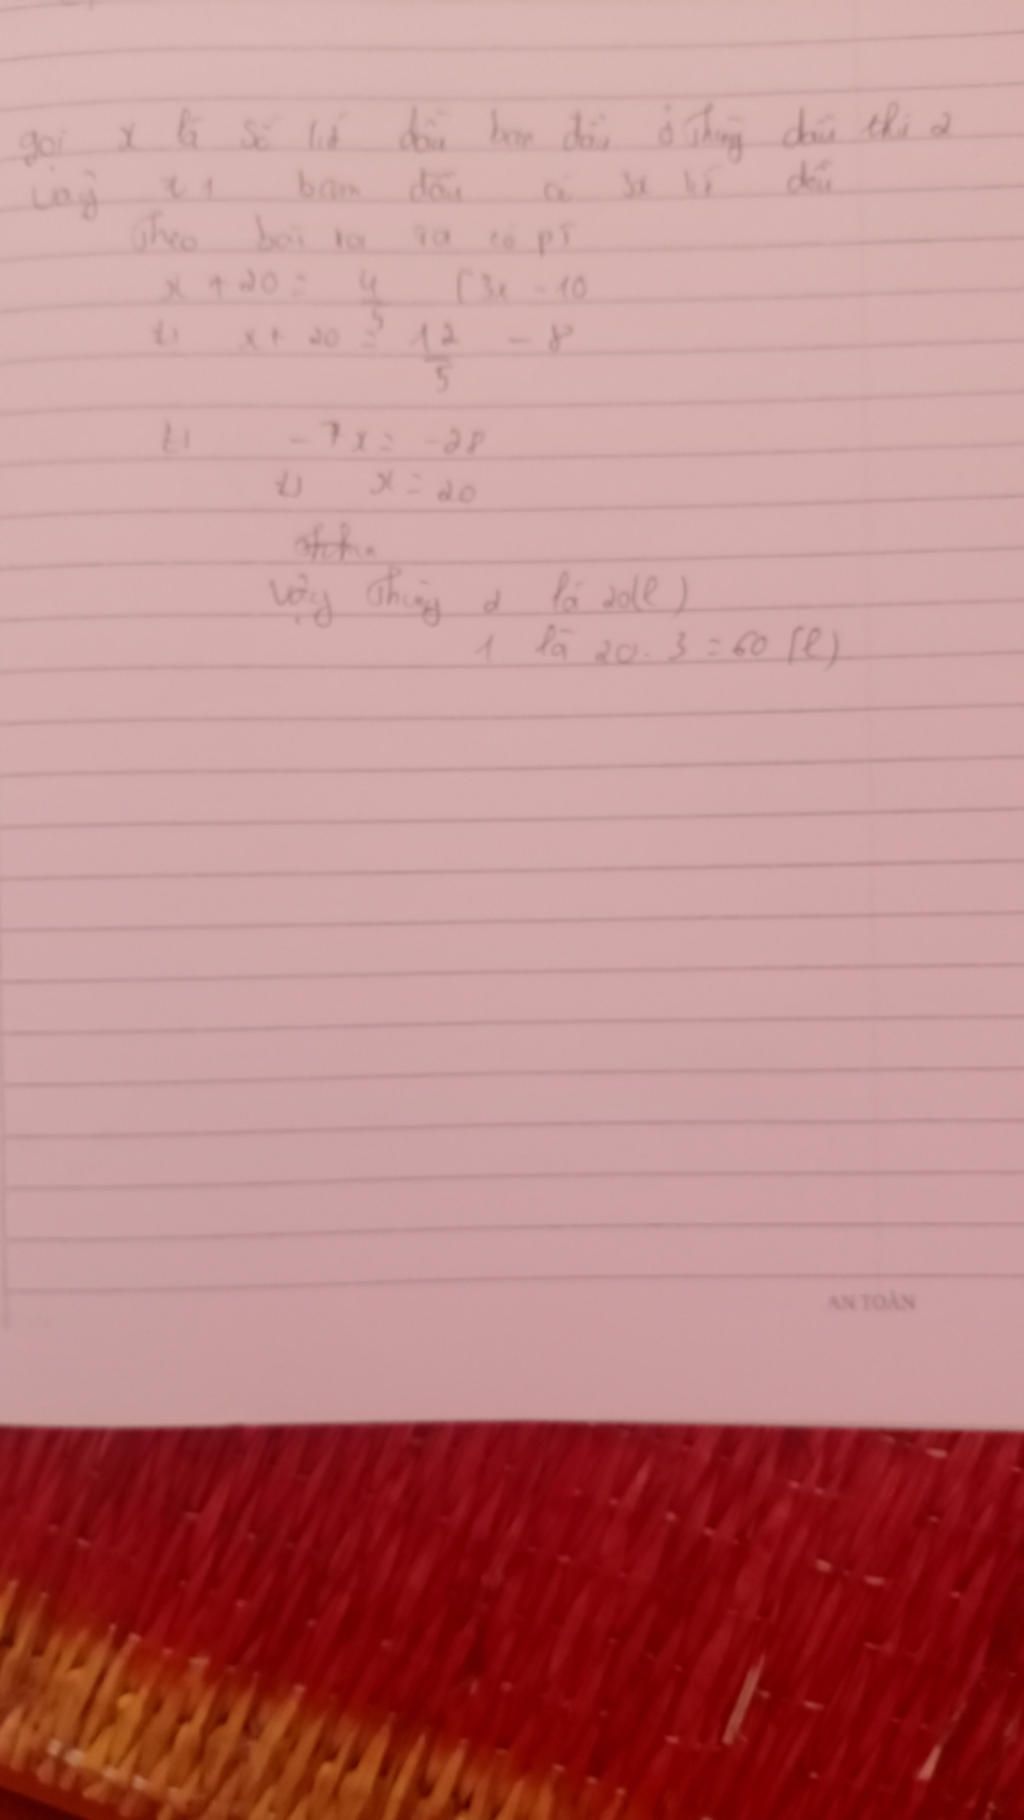 gọi x là số lít dầu ban đầu ở Thùng dầu thứ 2
Vậy x 1 ban đầu có 3x lí dầu
Theo bài ra ta có pt
x + 20 = 4/5 (3x - 10
x + 20 = 12/5 - 8
- 7x = -28
x = 20
Vậy Thùng 2 là 20(l)
1 là 20. 3 = 60 (l)
AN TOÀN